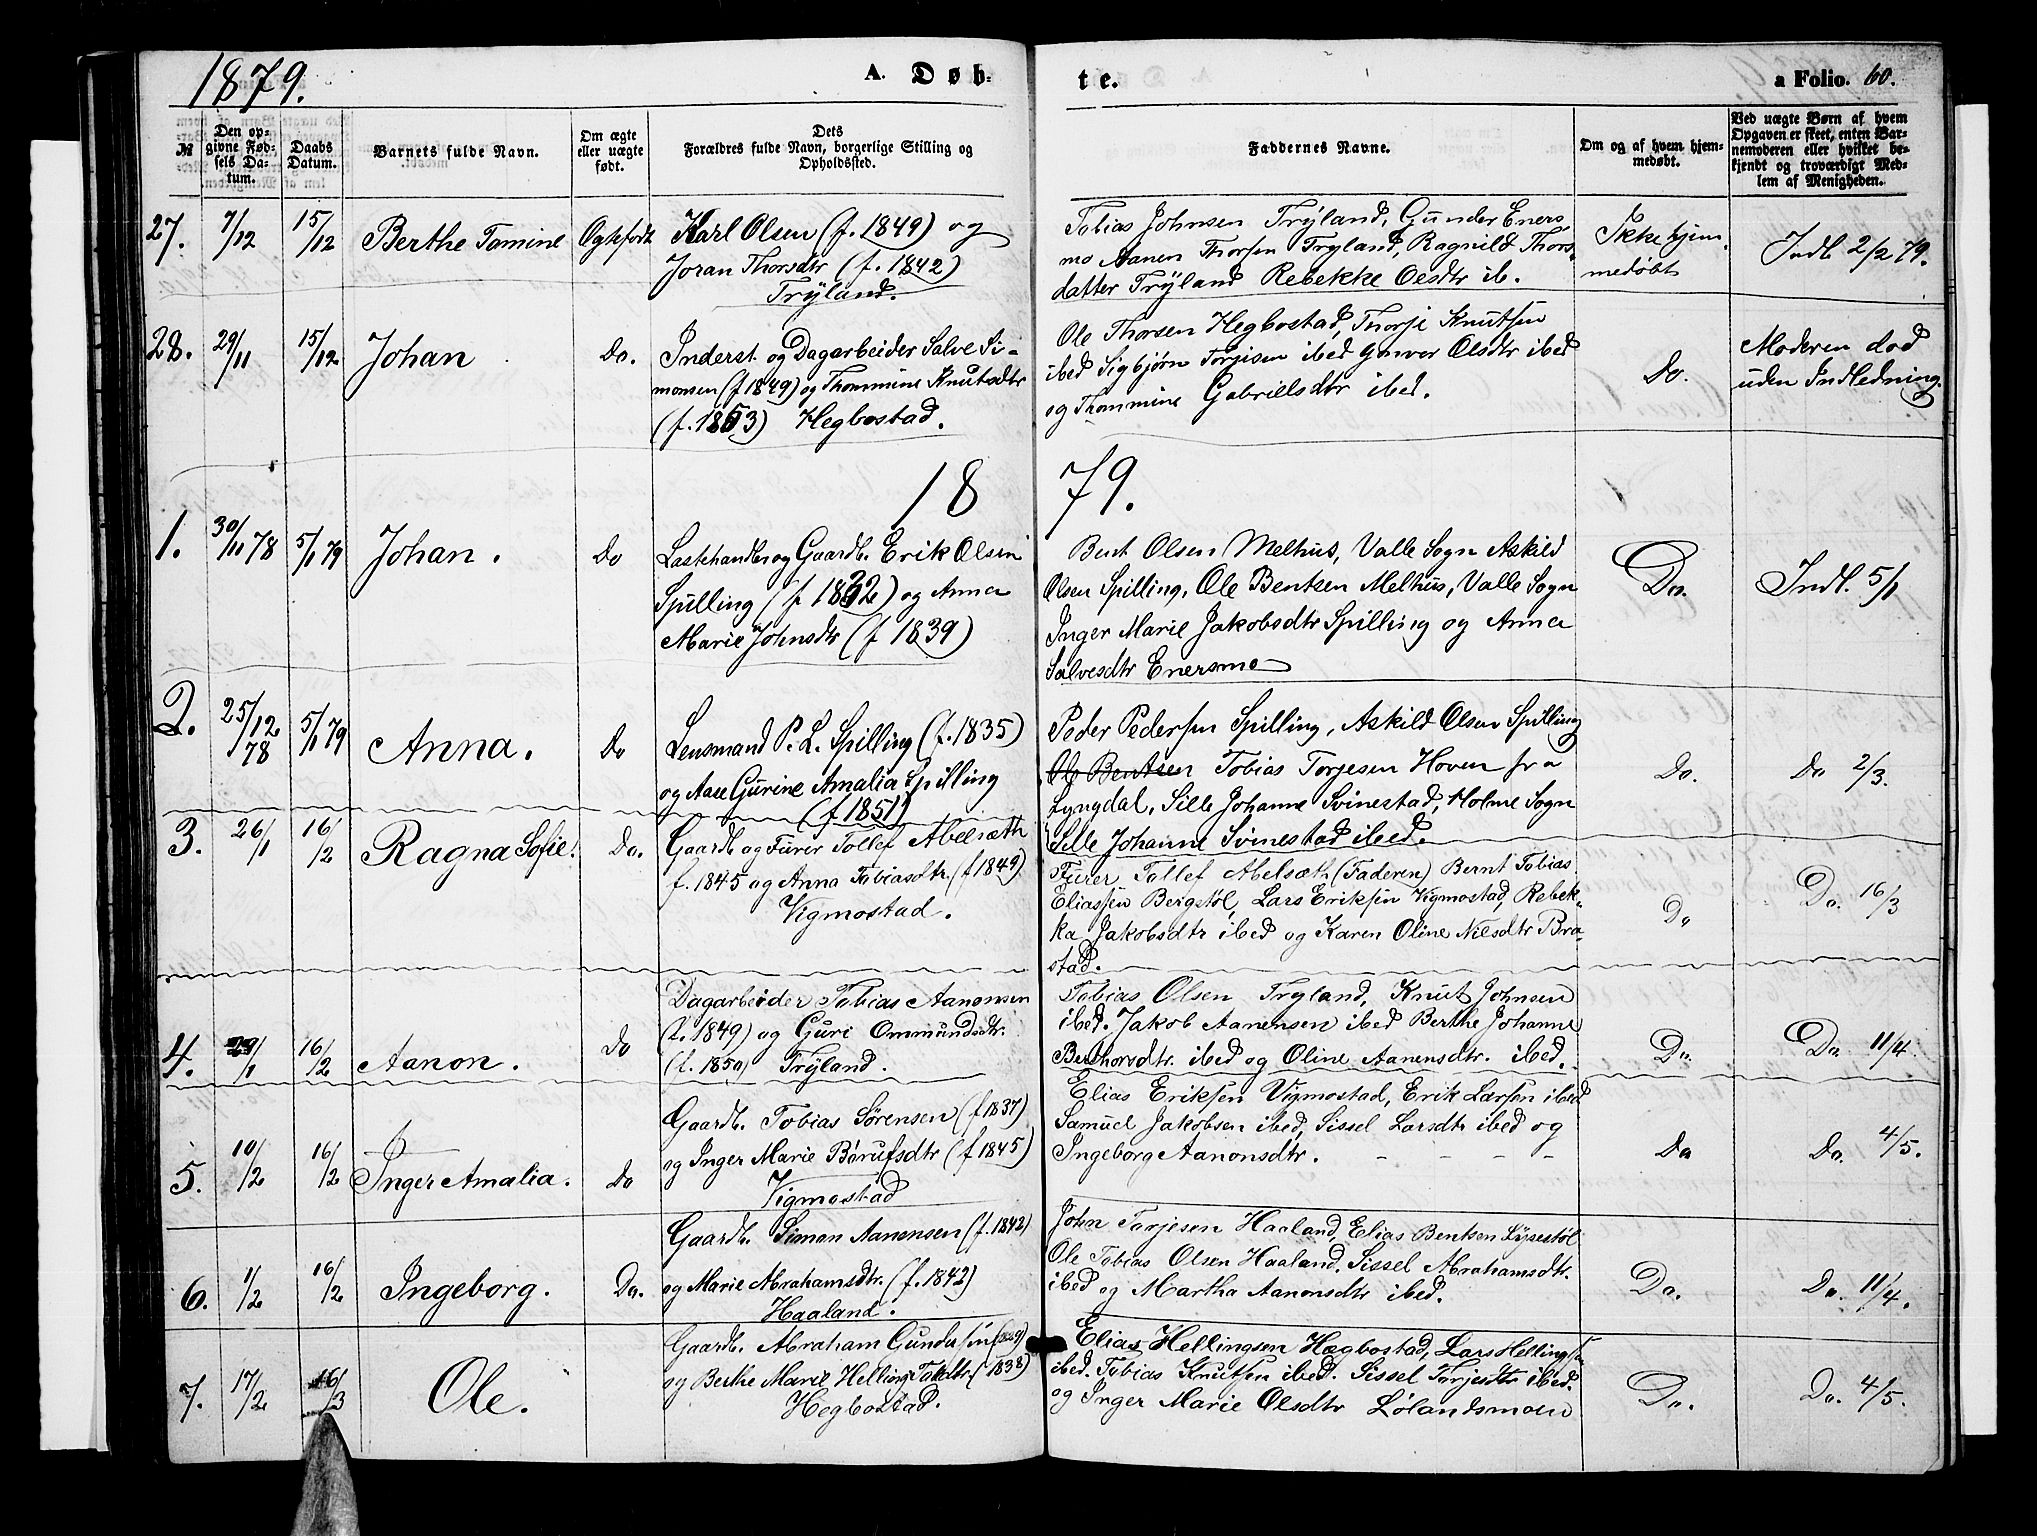 1879.
A. Døb-
te.
a Folio. 60.
№
Den op-
givne Fød-
sels Da-
tum.
Daabs
Datum.
Barnets fulde Navn.
Om ægte
eller uægte
født.
Dets
Forældres fulde Navn, borgerlige Stilling og
Opholdssted.
Faddernes Navne.
Om og af hvem hjem-
medøbt.
Ved uægte Børn af hvem
Opgaven er skeet, enten Bar-
nemoderen eller hvilket be-
kjendt og troværdigt Med-
lem af Menigheden.
27.
7/12
15/12
Berthe Tomine
Ogtefødt
Karl Olsen (f. 1849) og
Joran Thorsdtr (f. 1842)
Trÿland.
Tobias Johnsen Trÿland, Gunder Eners
mo Aanen Thorsen Tryland, Ragnild Thors-
datter Trÿland Rebekke Olsdtr ib.
Ikke hjem-
medøbt
Indl 2/2 79.
28.
29/11
15/12
Johan
Do.
Inderst og Dagarbeider Salve Si-
monsen (f 1849) og Thommine Knutsdtr
(f. 1853) Hegbostad.
Ole Thorsen Hegbostad, Thorje Knutsen
ibed Sigbjørn Torjisen ibed Gunvor Olsdtr ibed
og Thommine Gabrielsdtr ibed.
Do.
Moderen død
uden Indledning.
18
79.
1.
30/11 78
5/1 79
Johan.
Do
Lastehandler og Gaardb. Erik Olsen
Spilling (f 1832) og Anna
Marie Johnsdtr (f 1839)
Bent Olsen Melhus, Valle Sogn Askild
Olsen Spilling, Ole Bentsen Melhus, Valle Sogn
Inger Marie Jakobsdtr Spilling og Anna
Salvesdtr Enersmo
Do.
Indl. 5/1
2.
25/12
78
5/1 79
Anna.
Do
Lensmand P. L. Spilling (f. 1835)
og Aase Gurine Amalia Spilling
(f 1851)
Peder Pedersen Spilling, Askild Olsen Spilling
Ole Bentsen Tobias Torjesen Hoven fra
Lyngdal, Sille Johanne Svinestad, Holme Sogn
Sille Johanne Svinestad ibed.
Do.
Do 2/3.
3.
26/1
16/2
Ragna Sofie.
Do.
Gaardb. og Furer Tollef Abelsæth
f. 1845 og Anna Tobiasdtr. (f 1849)
Vigmostad.
Furer Tollef Abelsæth (Faderen) Bernt Tobias
Eliassen Bergstøl, Lars Eriksen Vigmostad, Rebek-
ka Jakobsdtr ibed og Karen Oline Nilsdtr Bra-
stad.
Do
Do. 16/3
4.
29/1
16/2
Aanon.
Do
Dagarbeider Tobias Aanonsen
(f. 1849) og Guri Ommundsdtr.
(f. 1850) Trÿland.
Tobias Olsen Tryland, Knut Johnsen
ibed. Jakob Aanensen ibed Berthe Johanne
Benthorsdtr. ibed og Oline Aanensdtr. ibed.
Do.
Do. 11/4.
5.
10/2
16/2
Inger Amalia.
Do
Gaardb. Tobias Sørensen (f 1837)
og Inger Marie Børufsdtr (f 1845)
Vigmostad
Elias Eriksen Vigmostad, Erik Larsen ibed
Samuel Jakobsen ibed, Sissel Larsdtr ibed og
Ingeborg Aanonsdtr. - - - -
Do
Do. 4/5.
6.
1/2
16/2
Ingeborg.
Do.
Gaardb. Simon Aanensen (f. 1842)
og Marie Abrahamsdtr. (f. 1842)
Haaland.
John Torjesen Haaland, Elias Bentsen Lÿsestøl
Ole Tobias Olsen Haaland. Sissel Abrahamsdtr.
ibed og Martha Aanonsdtr ibed.
Do.
Do. 11/4.
7.
17/2
16/3
Ole.
Gaardb. Abraham Gundersen
og Berthe Marie Helling (1838)
Hegbostad.
Elias Hellingsen Hægbostad, Lars Hellingsen
ibed. Tobias Knutsen ibed. Sissel Torjesdtr ibed.
og Inger Marie Olsdtr Lølandsmoen
Do.
Do. 4/5.